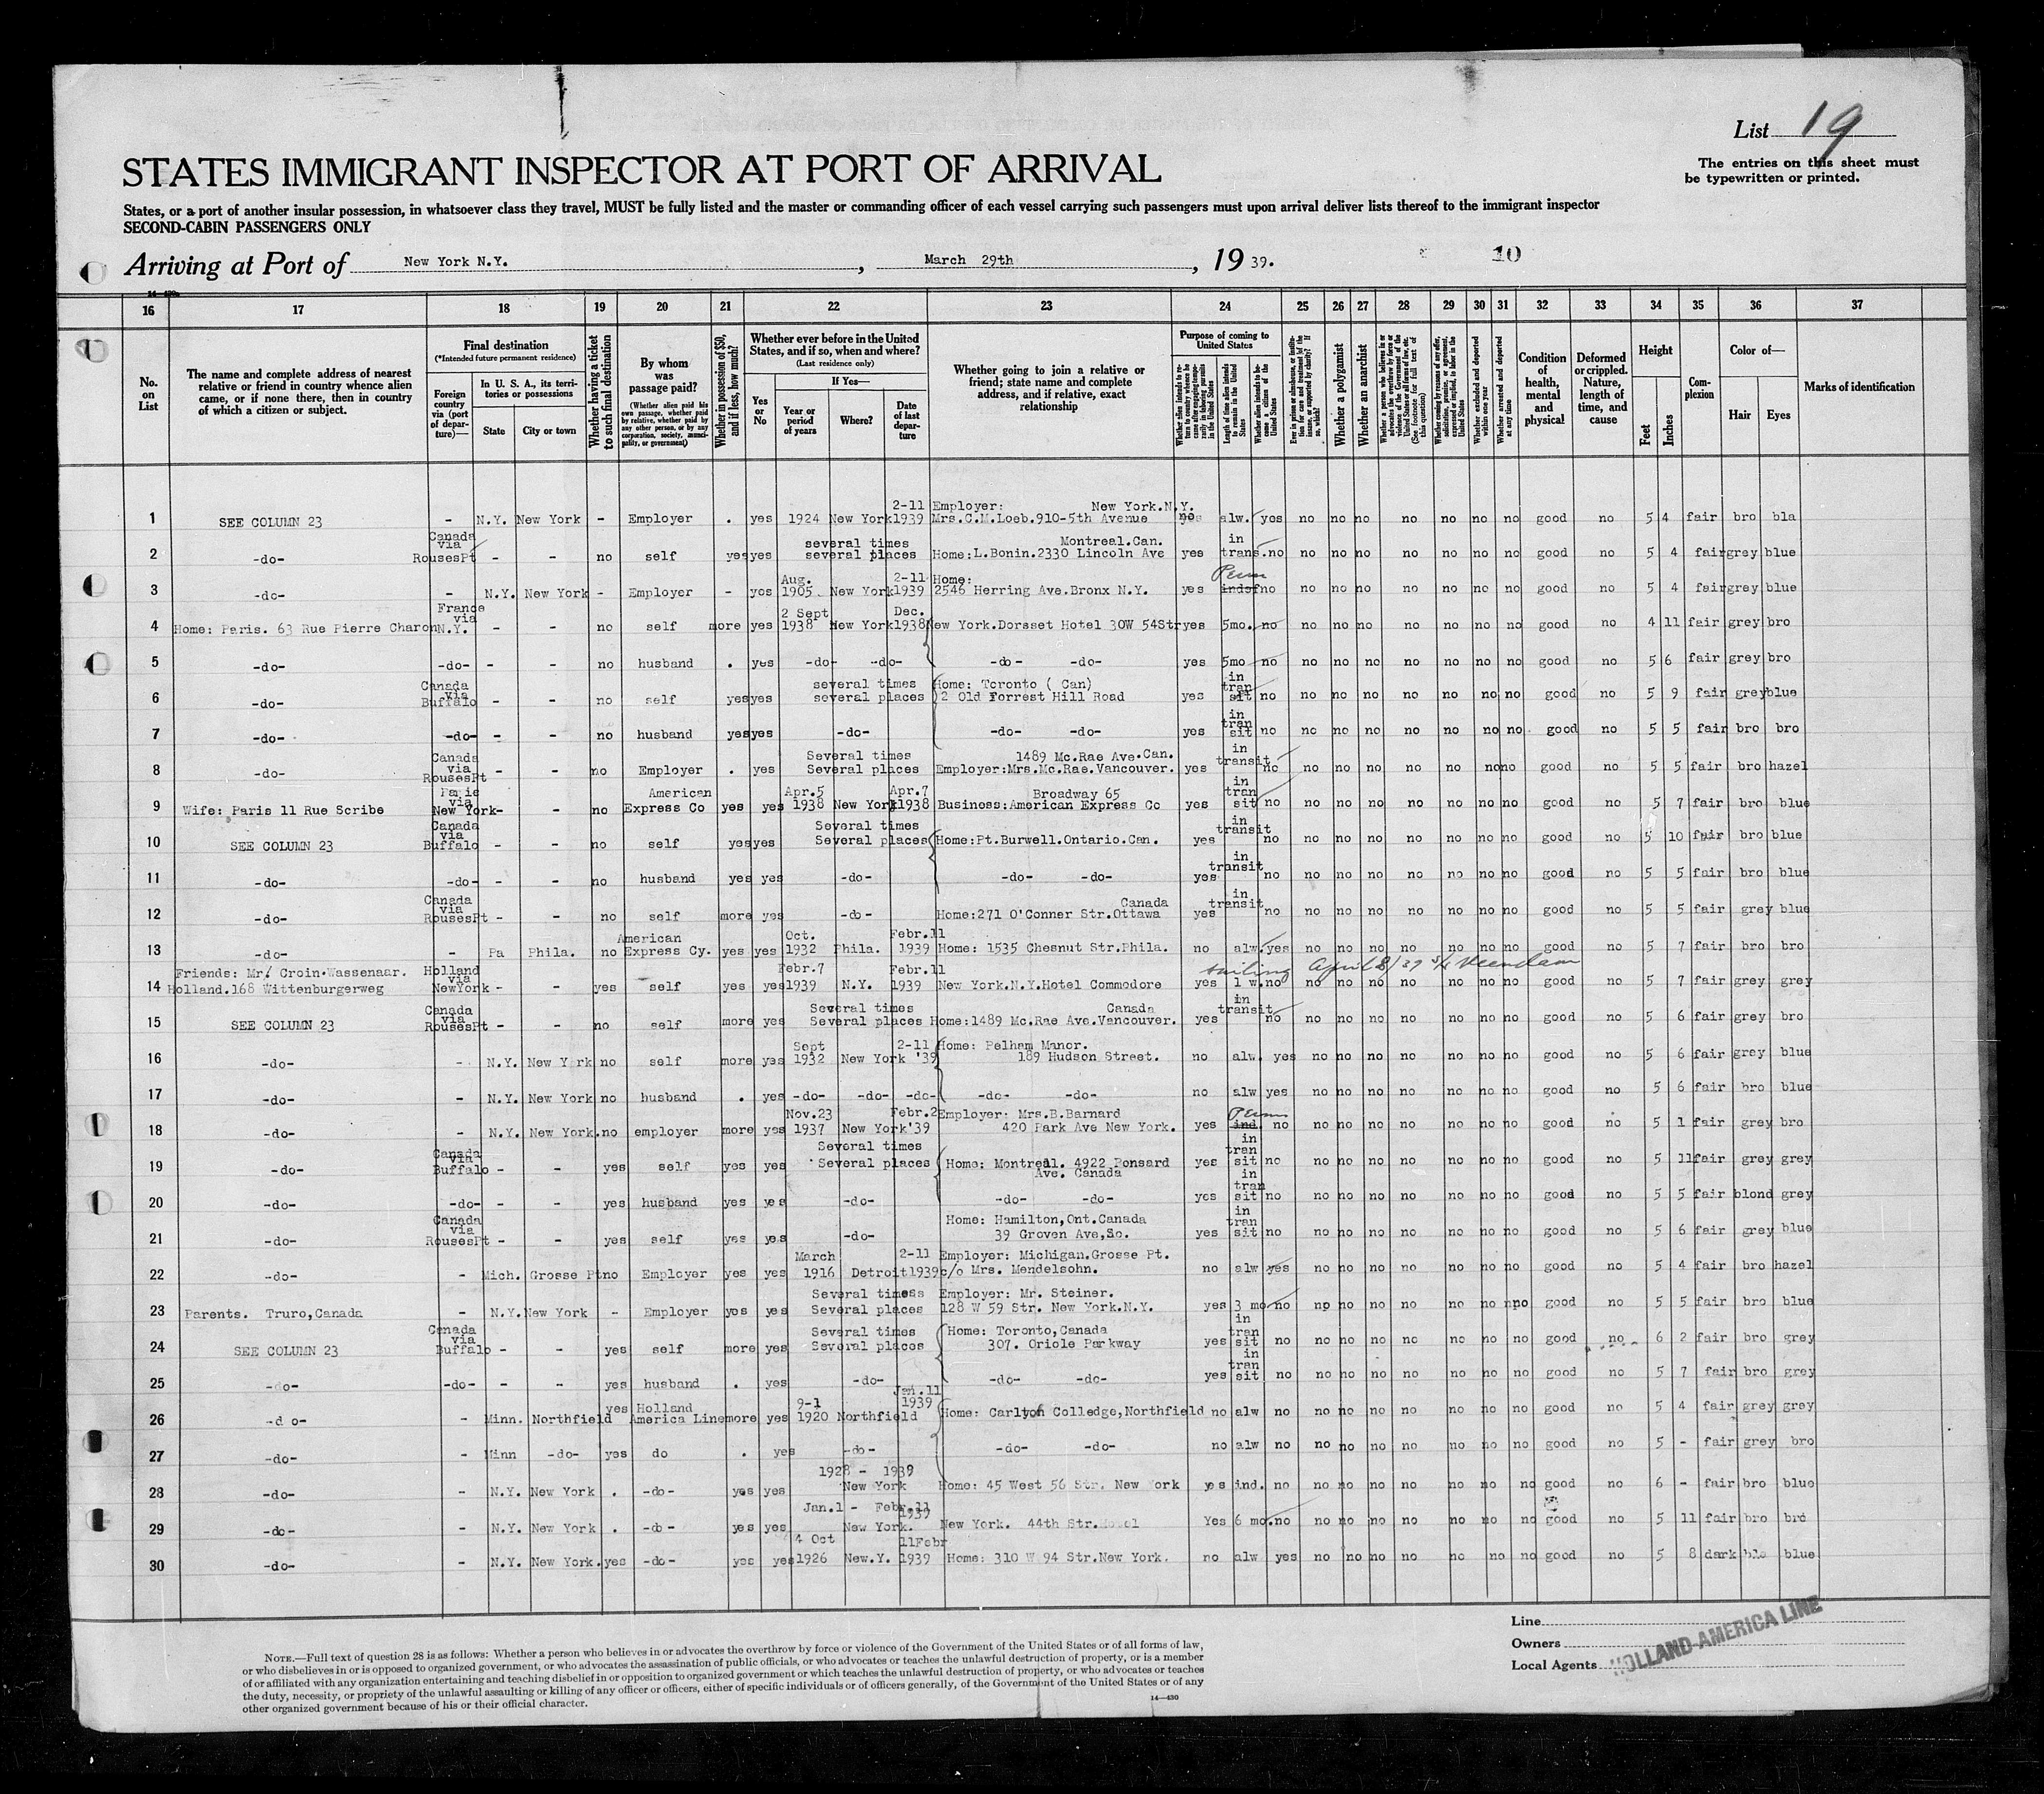 List 19
The entries on this sheet must
be typewritten or printed.
STATES IMMIGRANT INSPECTOR AT PORT OF ARRIVAL
States, or a port of another insular possession, in whatsoever class they travel, MUST be fully listed and the master or commanding officer of each vessel carrying such passengers must upon arrival deliver lists thereof to the immigrant inspector
SECOND-CABIN PASSENGERS ONLY
Arriving at Port of New York N.Y., March 29th, 19 39. 10
16 17 18 19 20 21 22 23 24 25 26 27 28 29 30 31 32 33 34 35 36 37
No. on List
The name and complete address of nearest relative or friend in country whence alien came, or if none there, then in country of which a citizen or subject.
Final destination
(*Intended future permanent residence)
Foreign country via (port of departure)—
In U. S. A., its territories or possessions
State
City or town
Whether having a ticket to such final destination
By whom was passage paid?
(Whether alien paid his own passage, whether paid by relative, whether paid by any other person, or by any corporation, society, municipality, or government)
Whether in possession of $50, and if less, how much?
Whether ever before in the United States, and if so, when and where?
(Last residence only)
Yes or No
If Yes—
Year or period of years
Where?
Date of last departure
Whether going to join a relative or friend; state name and complete address, and if relative, exact relationship
Purpose of coming to United States
Whether alien intends to return to country whence he came after engaging temporarily in laboring pursuits in the United States
Length of time alien intends to remain in the United States
Whether alien intends to become a citizen of the United States
Ever in prison or almshouse, or institution for care and treatment of the insane, or supported by charity? If so, which?
Whether a polygamist
Whether an anarchist
Whether a person who believes in or advocates the overthrow by force or violence of the Government of the United States or all forms of law, etc. (See footnote for full text of this question)
Whether coming by reasons of any offer, solicitation, promise, or agreement, expressed or implied, to labor in the United States
Whether excluded and deported within one year
Whether arrested and deported at any time
Condition of health, mental and physical
Deformed or crippled. Nature, length of time, and cause
Height
Feet
Inches
Complexion
Color of—
Hair
Eyes
Marks of identification
1 SEE COLUMN 23 - N.Y. New York - Employer . yes 1924 New York 2-11 1939 Employer: New York.N.Y. Mrs.C.M.Loeb.910-5th Avenue no alw. yes no no no no no no no good no 5 4 fair bro bla
2 -do- Canada via RousesPt - - no self yes yes several times several places Montreal.Can. Home:L.Bonin.2330 Lincoln Ave yes in trans. no no no no no no no no good no 5 4 fair grey blue
3 -do- - N.Y. New York - Employer - yes Aug. 1905 New York 2-11 1939 Home: 2546 Herring Ave.Bronx N.Y. yes Perm indef no no no no no no no no good no 5 4 fair grey blue
4 Home: Paris. 63 Rue Pierre Charon France via N.Y. - - no self more yes 2 Sept 1938 New York Dec. 1938 New York.Dorsset Hotel 30W 54Str yes 5mo. no no no no no no no no good no 4 11 fair grey bro
5 -do- -do- - - no husband . yes -do- -do- -do- -do- yes 5mo no no no no no no no no good no 5 6 fair grey bro
6 -do- Canada via Buffalo - - no self yes yes several times several places Home: Toronto ( Can) 2 Old Forrest Hill Road yes in tran sit no no no no no no no no good no 5 9 fair grey blue
7 -do- -do- - - no husband yes yes -do- -do- -do- yes in tran sit no no no no no no no no good no 5 5 fair bro bro
8 -do- Canada via RousesPt - - no Employer . yes Several times Several places 1489 Mc.Rae Ave.Can. Employer:Mrs.Mc.Rae.Vancouver. yes in transit no no no no no no no no good no 5 5 fair bro hazel
9 Wife: Paris 11 Rue Scribe Paris via New York - - no American Express Co yes yes Apr.5 1938 New York Apr.7 1938 Broadway 65 Business:American Express Co yes in tran sit no no no no no no no no good no 5 7 fair bro blue
10 SEE COLUMN 23 Canada via Buffalo - - no self yes yes Several times Several places Home:Pt.Burwell.Ontario.Can. yes in transit no no no no no no no no good no 5 10 fair bro blue
11 -do- -do- - - no husband yes yes -do- -do- -do- yes in transit no no no no no no no no good no 5 5 fair bro blue
12 -do- Canada via RousesPt - - no self more yes -do- Canada Home:271 O'Conner Str.Ottawa yes in transit no no no no no no no no good no 5 5 fair grey blue
13 -do- - Pa Phila. no American Express Cy. yes yes Oct. 1932 Phila. Febr.11 1939 Home: 1535 Chesnut Str.Phila. no alw. yes no no no no no no no good no 5 7 fair bro bro
14 Friends: Mr/ Croin.Wassenaar. Holland.168 Wittenburgerweg Holland via NewYork - - yes self yes yes Febr.7 1939 N.Y. Febr.11 1939 New York.N.Y.Hotel Commodore sailing April 8/39 S/S Veendam yes 1 w. no no no no no no no no good no 5 7 fair grey grey
15 SEE COLUMN 23 Canada via RousesPt - - no self more yes Several times Several places Canada Home:1489 Mc.Rae Ave.Vancouver. yes in transit no no no no no no no no good no 5 6 fair grey bro
16 -do- - N.Y. New York no self more yes Sept 1932 New York 2-11 '39 Home: Pelham Manor. 189 Hudson Street. no alw. yes no no no no no no no good no 5 6 fair grey blue
17 -do- - N.Y. New York no husband . yes -do- -do- -do- -do- -do- no alw yes no no no no no no no good no 5 6 fair bro blue
18 -do- - N.Y. New York. no employer more yes Nov.23 1937 New York Febr.2 '39 Employer: Mrs.B.Barnard 420 Park Ave New York. yes Perm ind. no no no no no no no no good no 5 1 fair grey bro
19 -do- Canada via Buffalo - - yes self yes yes Several times Several places Home: Montreal. 4922 Ponsard Ave. Canada yes in tran sit no no no no no no no no good no 5 11 fair grey grey
20 -do- -do- - - yes husband yes yes -do- -do- -do- yes in tran sit no no no no no no no no good no 5 5 fair blond grey
21 -do- Canada via RousesPt - - yes self yes yes -do- Home: Hamilton,Ont.Canada 39 Groven Ave,So. yes in tran sit no no no no no no no no good no 5 6 fair grey blue
22 -do- - Mich. Grosse Pt no Employer yes yes March 1916 Detroit 2-11 1939 Employer: Michigan.Grosse Pt. c/o Mrs. Mendelsohn. no alw yes no no no no no no no good no 5 4 fair bro hazel
23 Parents. Truro,Canada - N.Y. New York - Employer yes yes Several times Several places Employer: Mr. Steiner. 128 W 59 Str. New York.N.Y. yes 3 mo no no no no no no no no good no 5 5 fair bro blue
24 SEE COLUMN 23 Canada via Buffalo - - yes self more yes Several times Several places Home: Toronto,Canada 307. Oriole Parkway yes in tran sit no no no no no no no no good no 6 2 fair bro grey
25 -do- -do- - - yes husband . yes -do- -do- -do- yes in tran sit no no no no no no no no good no 5 7 fair bro grey
26 -do- - Minn. Northfield yes Holland America Line more yes 9-1 1920 Northfield Jan.11 1939 Home: Carlton Colledge,Northfield no alw no no no no no no no no good no 5 4 fair grey grey
27 -do- - Minn -do- yes do . yes -do- -do- -do- no alw no no no no no no no no good no 5 - fair grey bro
28 -do- - N.Y. New York . -do- yes yes 1928 - 1939 New York Home: 45 West 56 Str. New York yes ind. no no no no no no no no good no 6 - fair bro blue
29 -do- - N.Y. New York . -do- yes yes Jan.1 - Febr.11 1939 New York. New York. 44th Str.Hotel Yes 6 mo. no no no no no no no no good no 5 11 fair bro bro
30 -do- - N.Y. New York. yes -do- yes yes 4 Oct 1926 New.Y. 11Febr 1939 Home: 310 W 94 Str.New York. no alw yes no no no no no no no good no 5 8 dark bla blue
Line
Owners
Local Agents
HOLLAND-AMERICA LINE
NOTE.—Full text of question 28 is as follows: Whether a person who believes in or advocates the overthrow by force or violence of the Government of the United States or of all forms of law,
or who disbelieves in or is opposed to organized government, or who advocates the assassination of public officials, or who advocates or teaches the unlawful destruction of property, or is a member
of or affiliated with any organization entertaining and teaching disbelief in or opposition to organized government or which teaches the unlawful destruction of property, or who advocates or teaches
the duty, necessity, or propriety of the unlawful assaulting or killing of any officer or officers, either of specific individuals or of officers generally, of the Government of the United States or of any
other organized government because of his or their official character.
14—430